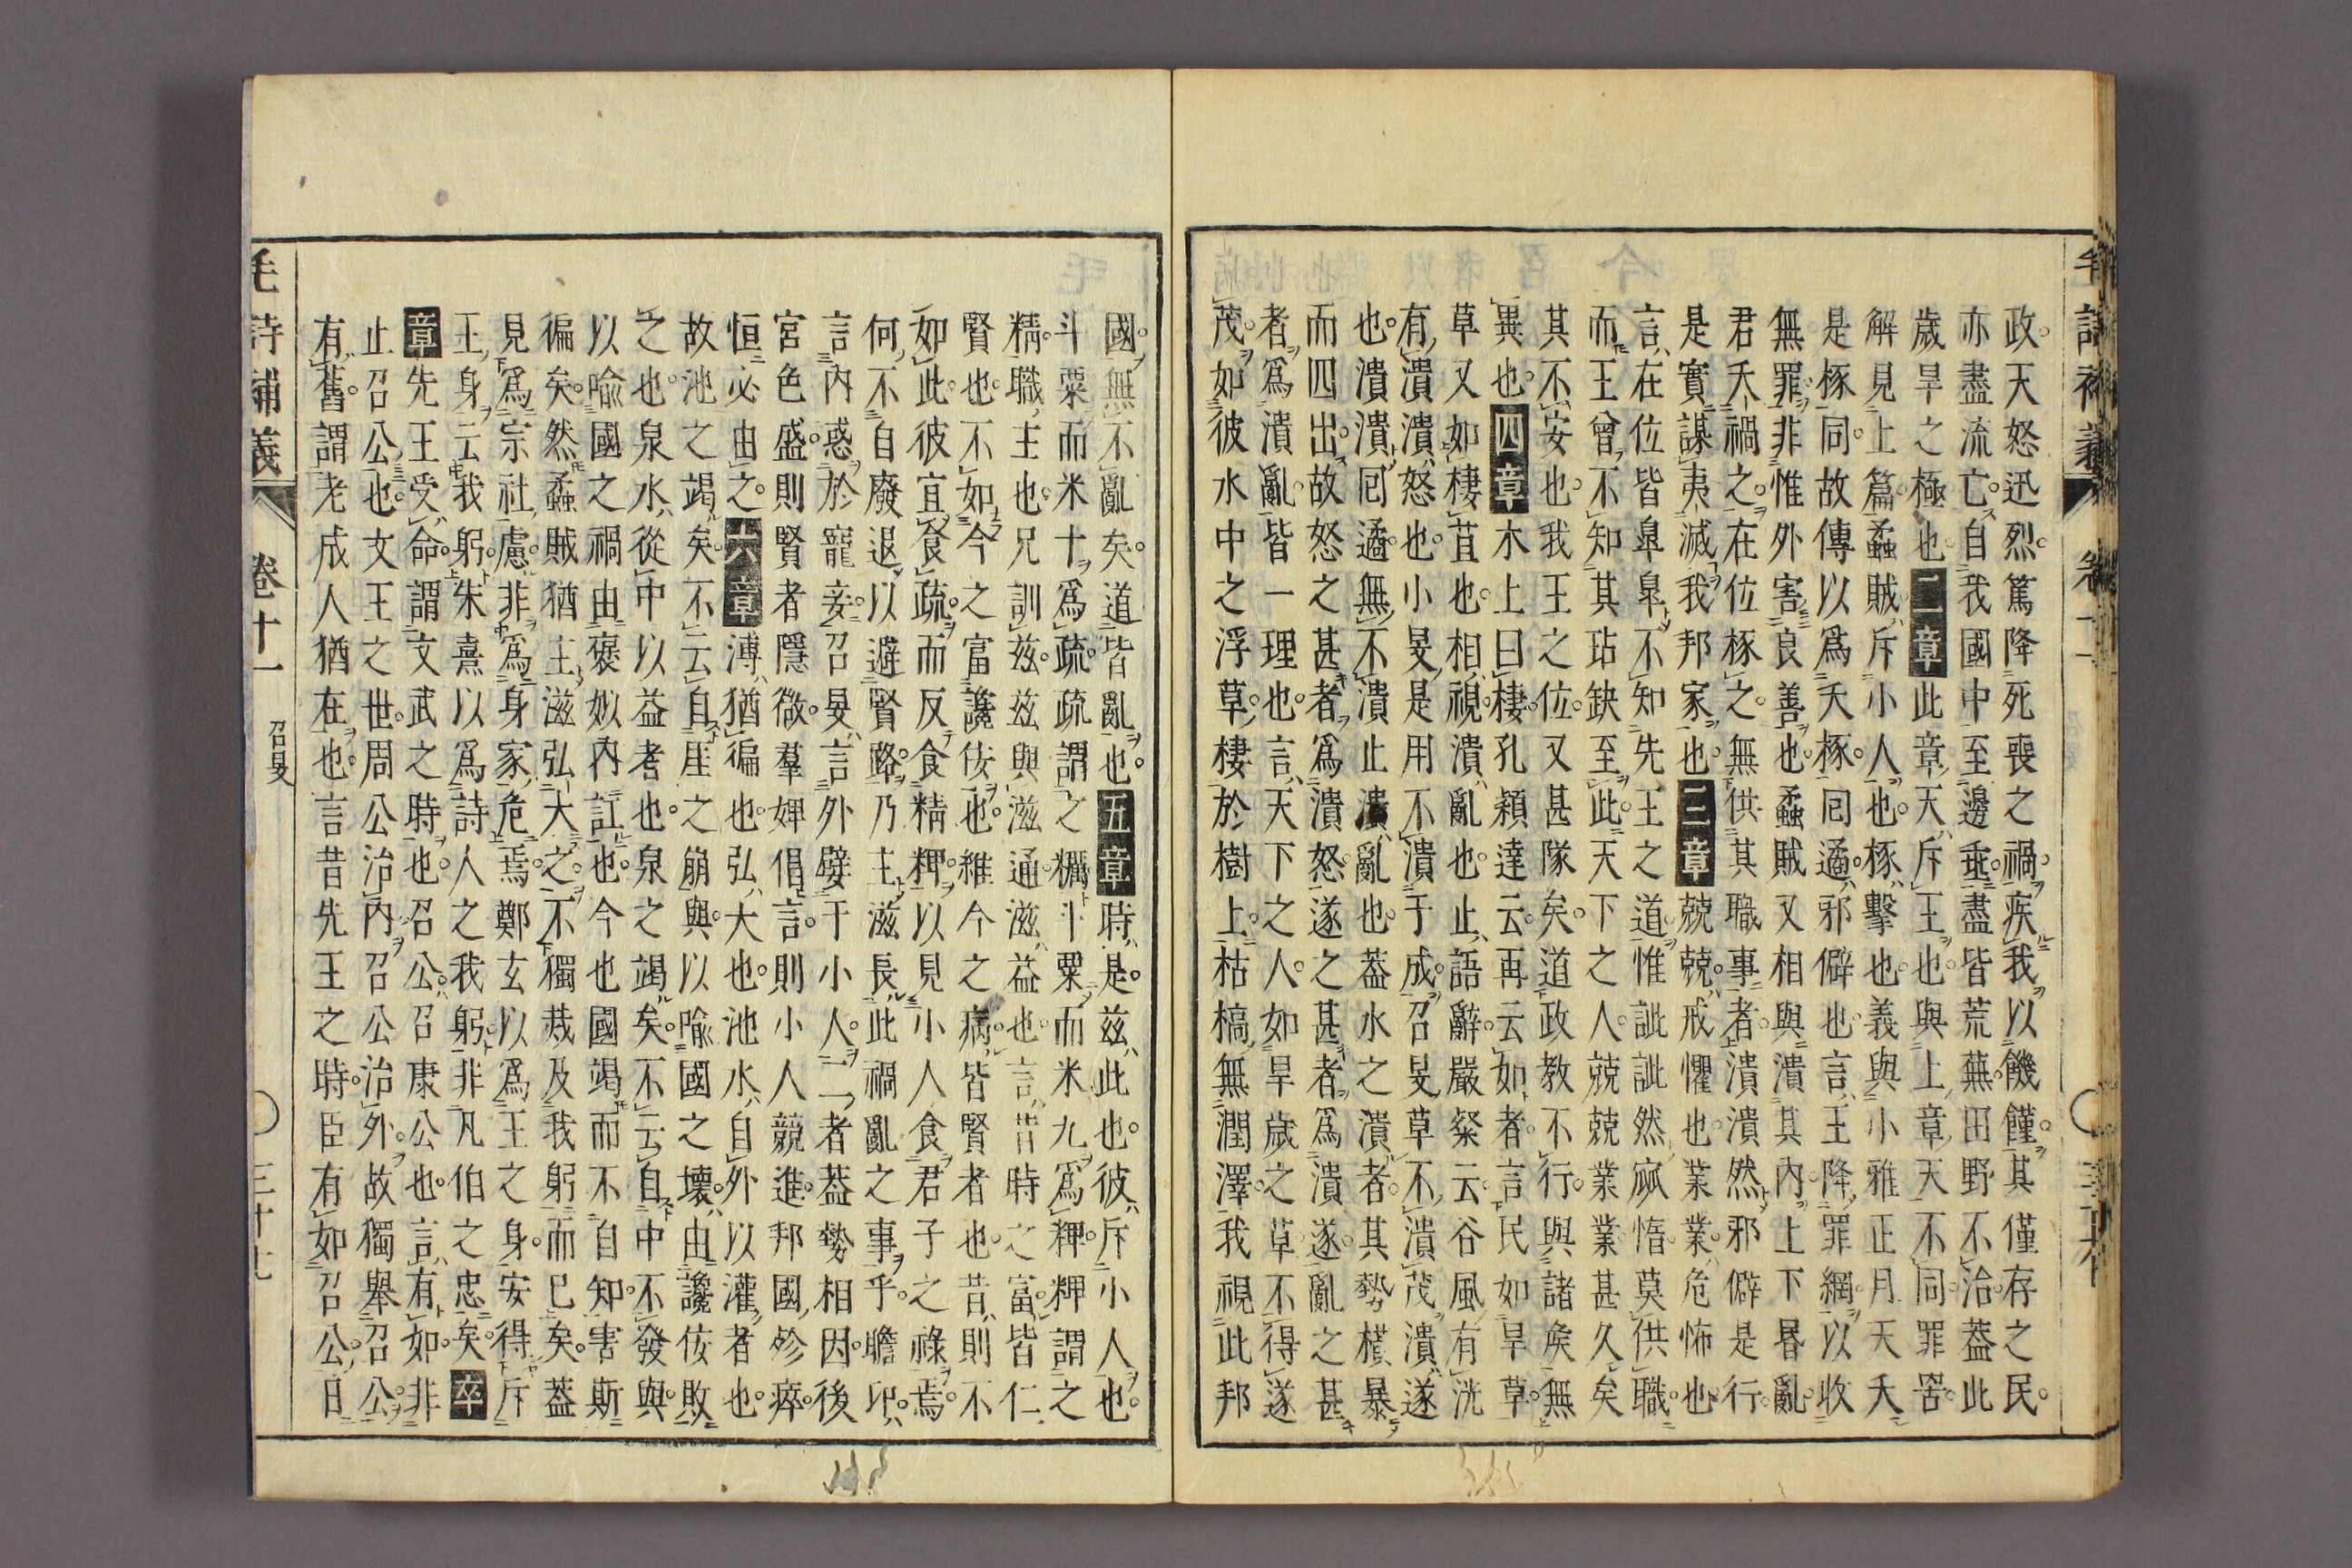 政天怒迅烈篤降死喪之禍疾我以饑饉其僅存之民
亦盡流亡自我國中至邊垂盡皆荒蕪田野不治蓋此
歲旱之極也二章此章天斥王也與上章天不同罪罟
解見上篇蟊賊斥小人也椓擊也義與小雅正月天夭
是椓同故傳以爲夭椓囘遹邪僻也言王降罪網以收
無罪非惟外害良善也蟊賊又相與潰其內上下昬亂
君夭禍之在位椓之無供其職事者潰潰然邪僻是行
是實謀夷滅我邦家也三章兢兢戒懼也業業危怖也
言在位皆臯臯不知先王之道惟訿訿然窳惰莫供職
而王曾不知其玷缺至此天下之人兢兢業業甚久矣
其不安也我王之位又甚隊矣道政教不行與諸矦無
異也四章木上曰棲孔穎達云再云如者言民如旱草
草又如棲苴也相視潰亂也止語辭嚴粲云谷風有洸
有潰潰怒也小旻是用不潰于成召旻草不潰茂潰遂
也潰潰囘遹無不潰止潰亂也蓋水之潰者其勢橫暴
而四出故怒之甚者爲潰怒遂之甚者爲潰遂亂之甚
者爲潰亂皆一理也言天下之人如旱歲之草不得遂
茂如彼水中之浮草棲於樹上枯槁無潤澤我視此邦
毛詩補義 卷十一
國無不亂矣道皆亂也五章時是玆此也彼斥小人也
斗粟而米十爲疏疏謂之糲斗粟而米九爲粺粺謂之
精職主也兄訓玆玆與滋通滋益也言昔時之富皆仁
賢也不如今之富讒佞也維今之病皆賢者也昔則不
如此彼宜食疏而反食精粺以見小人食君子之祿焉
何不自廢退以避賢路乃主滋長此禍亂之事乎瞻卬
言內惑於寵妾召旻言外嬖于小人二者蓋勢相因後
宮色盛則賢者隱微羣婢倡言則小人競進邦國殄瘁
恒必由之六章溥猶徧也弘大也池水自外以灌者也
故池之竭矣不云自厓之崩與以喩國之壞由讒佞敗
之也泉水從中以益者也泉之竭矣不云自中不發與
以喩國之禍由褒姒內訌也今也國竭而不自知害斯
徧矣然蟊賊猶主滋弘大之不獨烖及我躬而已矣蓋
見爲宗社慮非爲身家危焉鄭玄以爲王之身安得斥
王身云我躬朱熹以爲詩人之我躬非凡伯之忠矣卒
章先王受命謂文武之時也召公召康公也言有如非
止召公也文王之世周公治內召公治外故獨舉召公
有舊謂老成人猶在也言昔先王之時臣有如召公日
毛詩補義 卷十一 召旻 三十七